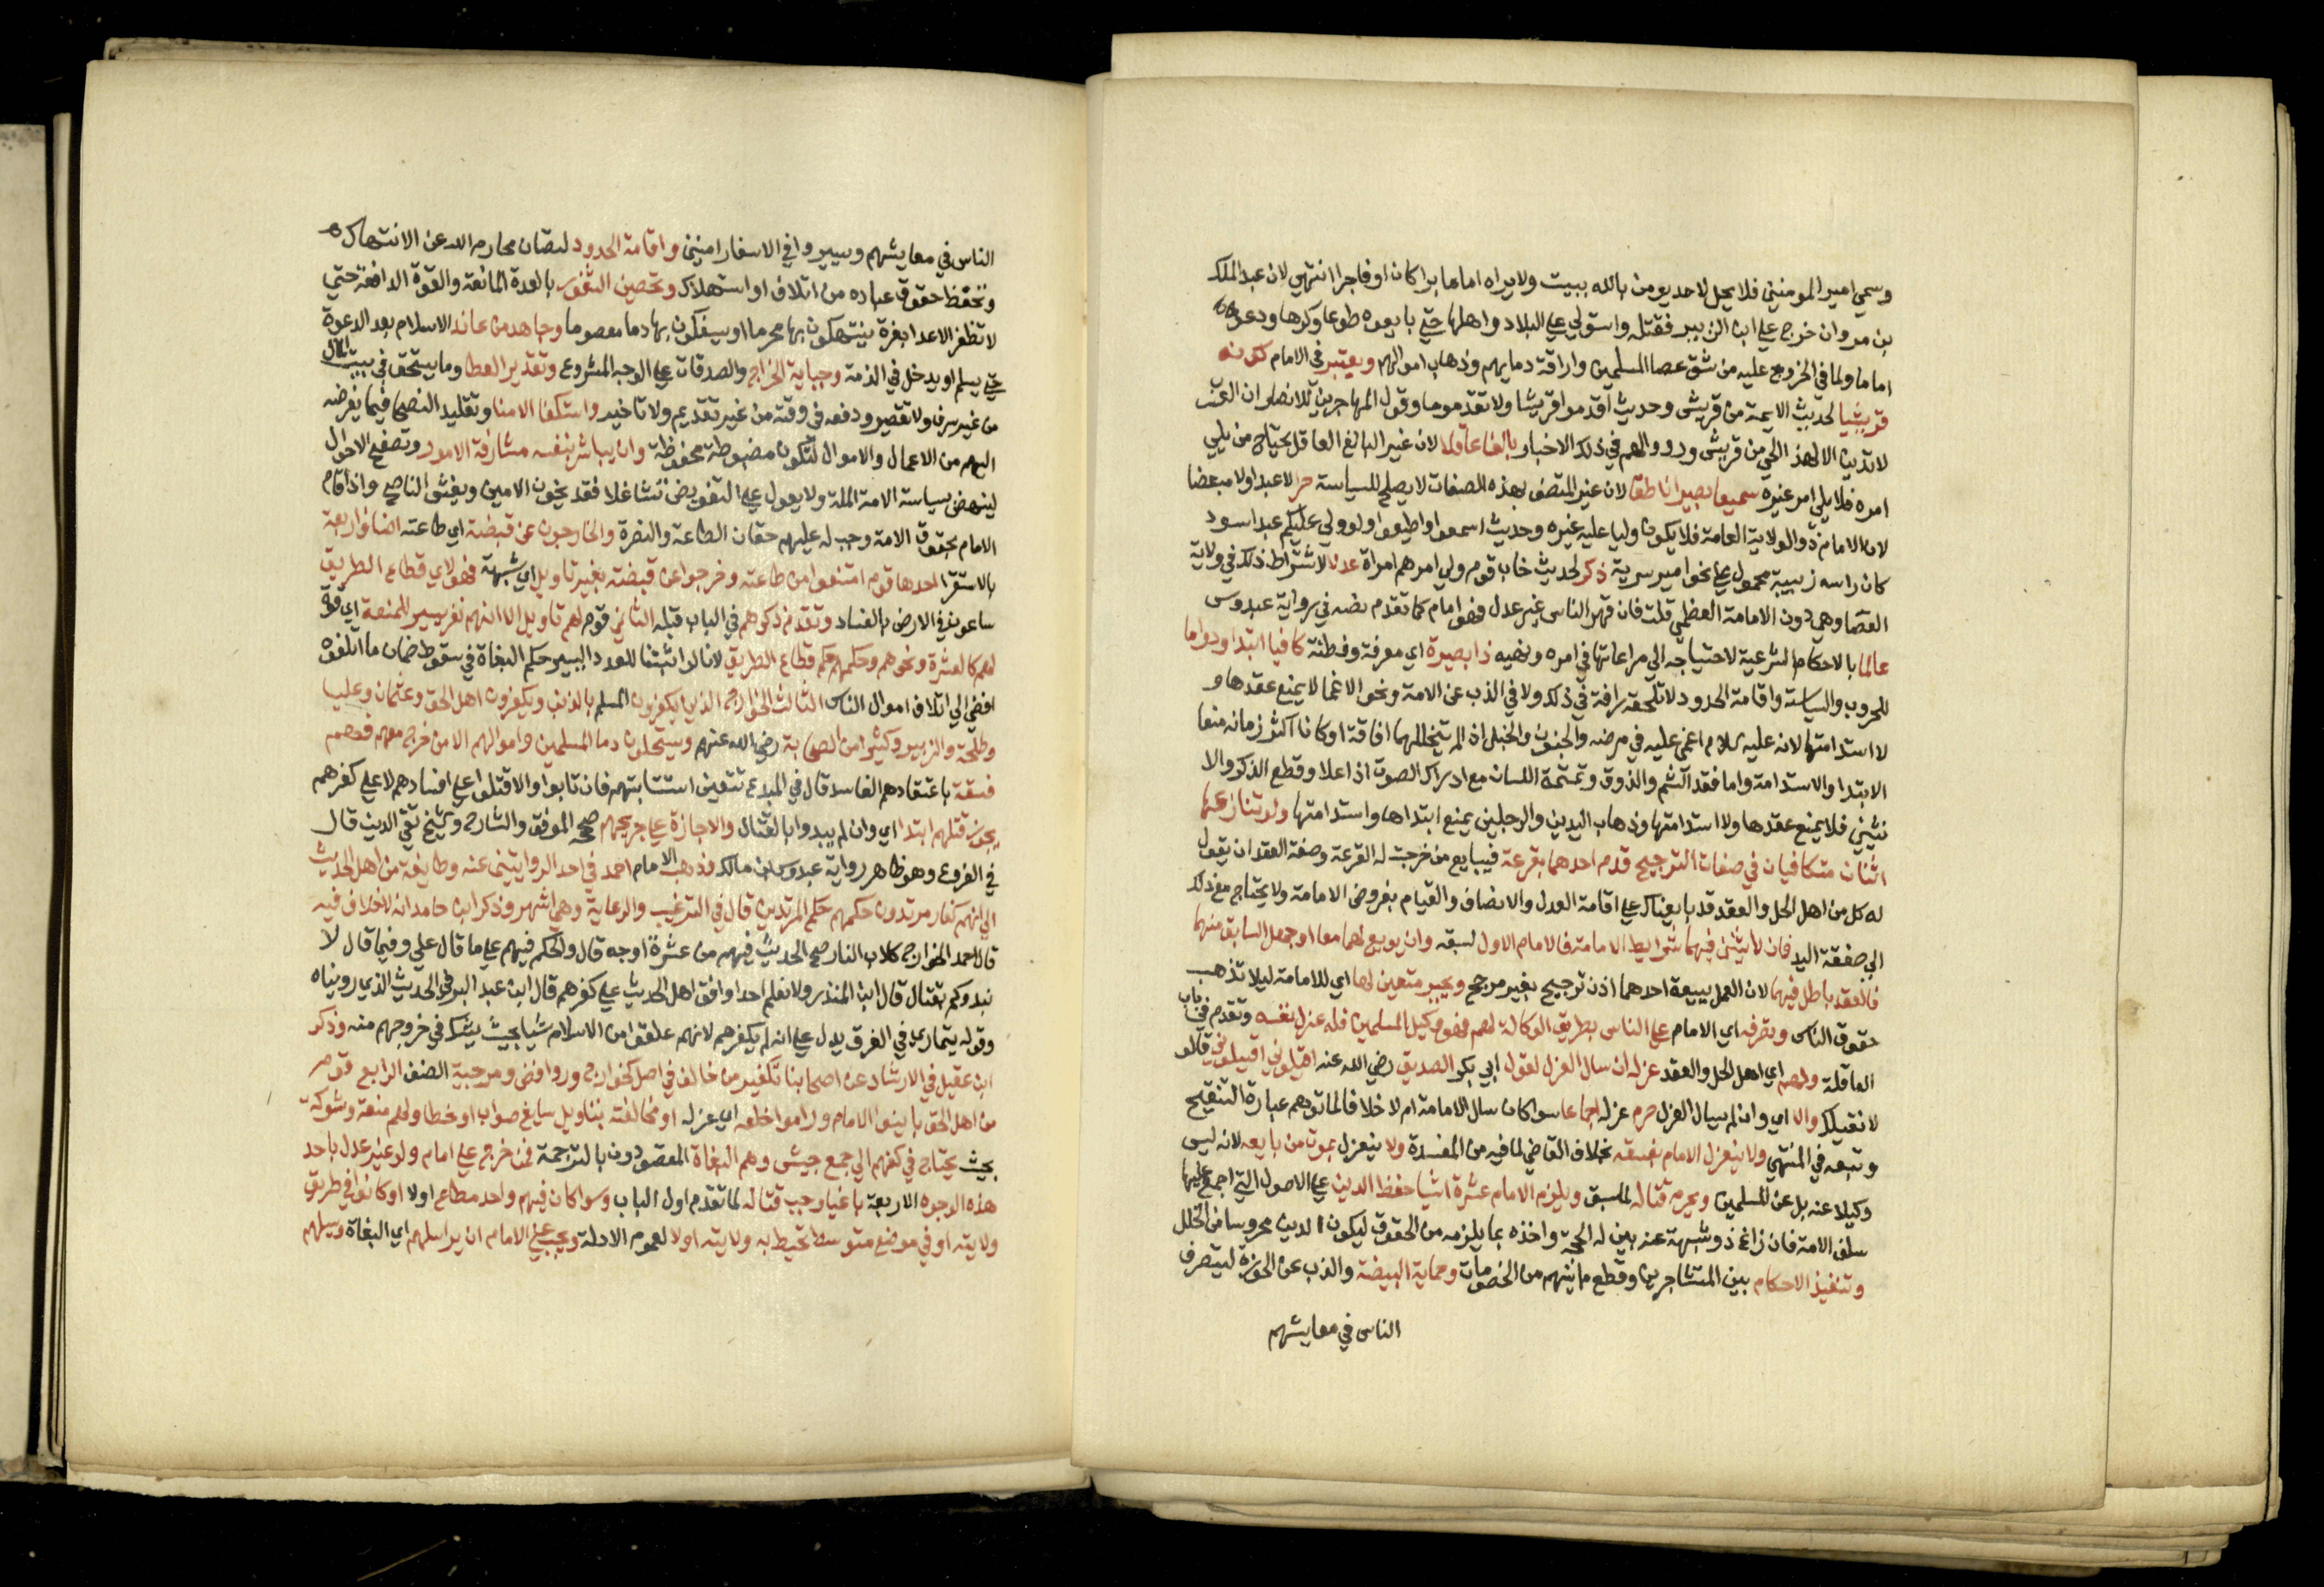 وسمي امير المومنين فلا يحل لاحد يومن بالله يبيت ولا يراه اماما برا كان او فاجرا انتهي لان عبد الملك
بن مروان خرج علي ابن الزبير فقتله واستولي علي البلاد واهلها حتي بايعوه طوعا وكرها ودعوه
اماما ولما في الخروج عليه من شق عصا المسلمين واراقة دمايهم وذهاب اموالهم ويعتبر في الامام كونه
قرشيا لحديث الايمة من قريش وحديث اقدموا قريشا ولا تقدموها وقول المهاجرين للانصار ان العرب
لا تدين الا لهذا الحي من قريش ورووا لهم في ذلك الاخبار بالغا عاقلا لان غير البالغ العاقل يحتاج من يلي
امره فلا يلي امر غيره سميعا بصيرا ناطقا لان غير المتصف بهذه الصفات لا يصلح للسياسة حرا لا عبدا ولا مبعضا
لان الامام ذو الولاية العامة فلا يكون وليا عليه غيره وحديث اسمعوا واطيعوا ولو ولي عليكم عبد اسود
كان راسه زبيبة محمول علي نحو امير سرية ذكرا لحديث خاب قوم ولي امرهم امراة عدلا لاشتراط ذلك في ولاية
القضا وهي دون الامامة العظمي قلت فان قهر الناس غير عدل فهو امام كما تقدم نصه في رواية عبدوس
عالما بالاحكام الشرعية لاحتياجه الي مراعاتها في امره ونهيه ذا بصيرة اي معرفة وفطنة كافيا ابتدا ودواما
للحروب والسياسة واقامة الحدود لا تلحقه رافة في ذلك ولا في الذب عن الامة ونحو الاغما لا يمنع عقدها و
لا استدامتها لانه عليه السلام اغمي عليه في مرضه والجنون والخبل اذا لم يتخللهما افاقة او كانا اكثر زمانه منعا
الابتدا والاستدامة واما فقد الشم والذوق وتمتمة اللسان مع ادراك الصوت اذا علا وقطع الذكر والا
نثيين فلا يمنع عقدها ولا استدامتها وذهاب اليدين والرجلين يمنع ابتداها واستدامتها ولو تنازعها
اثنان متكافيان في صفات الترجيح قدم احدهما بقرعة فيبايع من خرجت له القرعة وصفة العقد ان يقول
له كل من اهل الحل والعقد قد بايعناك علي اقامة العدل والانصاف والقيام بفروض الامامة ولا يحتاج مع ذلك
الي صفقة اليد فان لاثنين فيهما شرايط الامامة فالامام الاول لسبقه وان بويع لهما معا او جهل السابق منهما
فالعقد باطل فيهما لان العمل ببيعة احدهما اذن ترجيح بغير مرجح ويجبر متعين لها اي للامامة ليلا تذهب
حقوق الناس وتصرفه اي الامام علي الناس بطريق الوكالة لهم فهو وكيل المسلمين فله عزل نفسه وتقدم في باب
العاقلة ولهم اي اهل الحل والعقد عزله ان سال العزل لقول ابي بكر الصديق رضي الله عنه اقيلوني اقيلوني قالوا
لا نقيلك والا اي وان لم يسال العزل حرم عزله اجماعا سوا كان سال الامامة ام لا خلافا لما توهمه عبارة التنقيح
وتبعه في المنتهي ولا ينعزل الامام بفسقه بخلاف القاضي لما فيه من المفسدة ولا ينعزل بموت من بايعه لانه ليس
وكيلا عنه بل عن المسلمين ويحرم قتاله لما سبق ويلزم الامام عشرة اشيا حفظ الدين علي الاصول التي اجمع عليها
سلف الامة فان زاغ ذو شبهة عنه بين له الحجة واخذه بما يلزمه من الحقوق ليكون الدين محروسا من الخلل
وتنفيذ الاحكام بين المتشاجرين وقطع ما بينهم من الخصومات وحماية البيضة والذب عن الحوزة ليتصرف
الناس في معايشهم
الناس في معايشهم ويسيروا في الاسفار امنين واقامة الحدود لتصان محارم الله عن الانتهاك
وتحفظ حقوق عباده من اتلاف او استهلاك وتحصين الثغور بالعدة المانعة والقوة الدافعة حتي
لا تظفر الاعدا بغرة ينتهكون بها محرما او يسفكون بها دما معصوما وجهاد من عاند الاسلام بعد الدعوة
حتي يسلم او يدخل في الذمة وجباية الخراج والصدقات علي الوجه المشروع وتقدير العطا وما يستحق في بيت المال
من غير سرف ولا تقصير ودفعه في وقته من غير تقديم ولا تاخير واستكفا الامنا وتقليد النصحا فيما يفوضه
اليهم من الاعمال والاموال لتكون مضبوطة محفوظة وان يباشر بنفسه مشارفة الامور وتصفح الاحوال
لينهض بسياسة الامة الملة ولا يعول علي التفويض تشاغلا فقد يخون الامين ويغش الناصح واذا قام
الامام بحقوق الامة وجب له عليهم حقان الطاعة والنصرة والخارجون عن قبضته اي طاعته اصناف اربعة
بالاستقرا احدها قوم امتنعوا من طاعته وخرجوا عن قبضته بغير تاويل اي شبهة فهولاي قطاع الطريق
ساعون في الارض بالفساد وتقدم ذكرهم في الباب قبله الثاني قوم لهم تاويل الا انهم نفر يسير لا منعة اي قوة
لهم كالعشرة ونحوهم وحكمهم حكم قطاع الطريق لانا لو اثبتنا للعدد اليسير حكم البغاة في سقوط ضمان ما اتلفوه
افضي الي اتلاف اموال الناس الثالث الخوارج الذين يكفرون المسلم بالذنب ويكفرون اهل الحق وعثمان وعليا
وطلحة والزبير وكثيرا من الصحابة رضي الله عنهم ويستحلون دما المسلمين واموالهم الا من خرج معهم فهم
فسقة باعتقادهم الفاسد قال في المبدع تتعين استتابتهم فان تابوا والا قتلوا علي افسادهم لا علي كفرهم
يجوز قتلهم ابتدا اي وان لم يبدوا بالقتال والاجازة علي جريحهم صححه الموفق والشارح وشيخ تقي الدين قال
في الفروع وهو ظاهر رواية عبدوس ابن مالك وذهب الامام احمد في احد الروايتين عنه وطايفة من اهل الحديث
الي انهم كفار مرتدون حكمهم حكم المرتدين قال في الترغيب والرعاية وهي اشهر وذكر ابن حامد انه لا خلاف فيه
قال احمد الخوارج كلاب النار صح الحديث فيهم من عشرة اوجه قال والحكم فيهم علي ما قال علي وفيما قال لا
نبدوكم بقتال قال ابن المنذر ولا نعلم احدا وافق اهل الحديث علي كفرهم قال ابن عبد البر في الحديث الذي رويناه
وقوله يتماري في الفرق يدل علي انه لم يكفرهم لانهم علقوا من الاسلام شيا بحيث يشك في خروجهم منه وذكر
ابن عقيل في الارشاد عن اصحابنا تكفير من خالف في اصل كخوارج وروافض ومرجية الصنف الرابع قوم
من اهل الحق باينوا الامام وراموا خلعه اي عزله او مخالفته بتاويل سايغ صواب او خطا ولهم منعة وشوكة
بحيث يحتاج في كفهم الي جمع جيش وهم البغاة المقصودون بالترجمة فمن خرج علي امام ولو غير عدل باحد
هذه الوجوه الاربعة باغيا وجب قتاله لما تقدم اول الباب وسوا كان فيهم واحد مطاع اولا او كانوا في طرف
ولايته او في موضع متوسط تحيط به ولايته اولا لعموم الادلة ويجب علي الامام ان يراسلهم اي البغاة ويسلهم